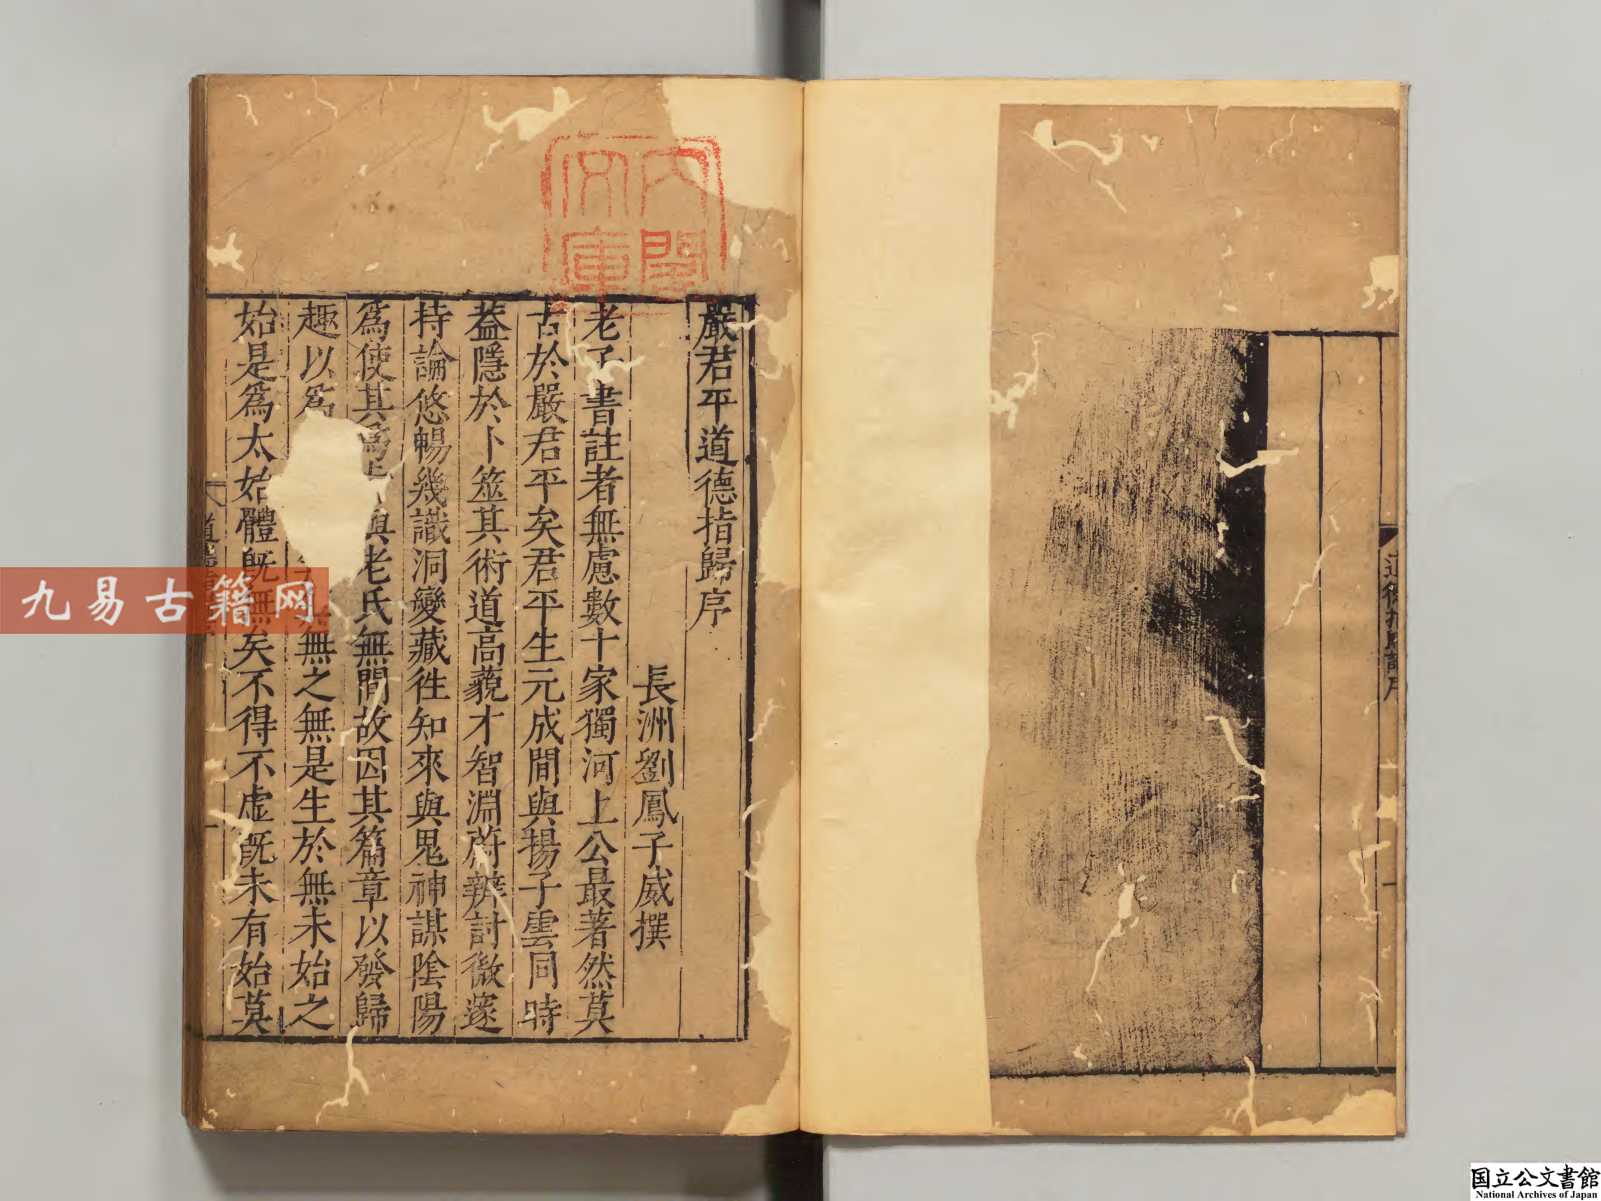 嚴君平道德指歸序
長洲劉鳳子威撰
老子書註者無慮數十家獨河上公最著然莫
古於嚴君平矣君平生元成間與揚子雲同時
葢隱於卜筮其術道高藐才智淵蔚辨討微邃
持論悠暢幾識洞變藏徃知來與鬼神謀陰陽
爲使其爲與老氏無間故因其篇章以發歸
趣以爲無之無是生於無未始之
始是爲太始體旣無矣不得不虛旣未有始莫
內閣文庫
九易古籍网
国立公文書館
National Archives of Japan